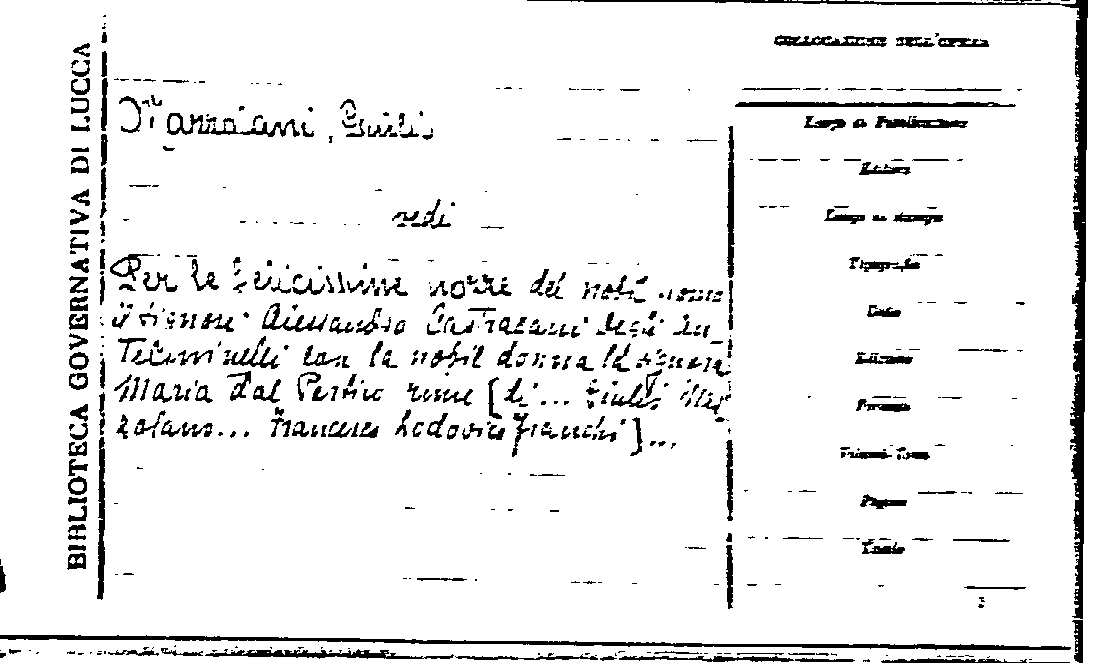 BIBLIOTECA GOVERNATIVA DI LUCCA
COLLOCAZIONE DELL'OPERA
Giulio
vedi
Per le felicissime nozze del nobil uomo
il signore Alessandro Castracani degli An-
Telminelli con la nobil donna la signora
Maria Dal Portico rime [di... Giulio Maz
zolani... Francesco Lodovico Franchi]...
Luogo di Pubblicazione
Editore
Luogo di stampa
Tipografia
Data
Edizione
Formato
Volumi-Tomi
Pagine